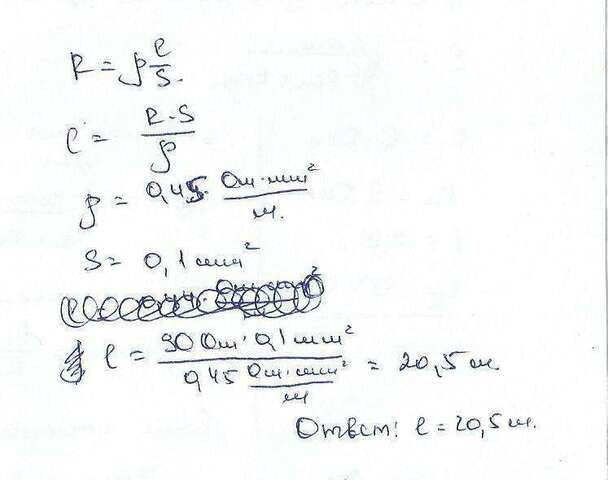 R = ρ l/S.
l = R·S/ρ
ρ = 0,45 Ом·мм²/м.
S = 0,1 мм²
l = 90 Ом·0,1 мм² / 0,45 Ом·мм²/м = 20,5 м
Ответ: l = 20,5 м.